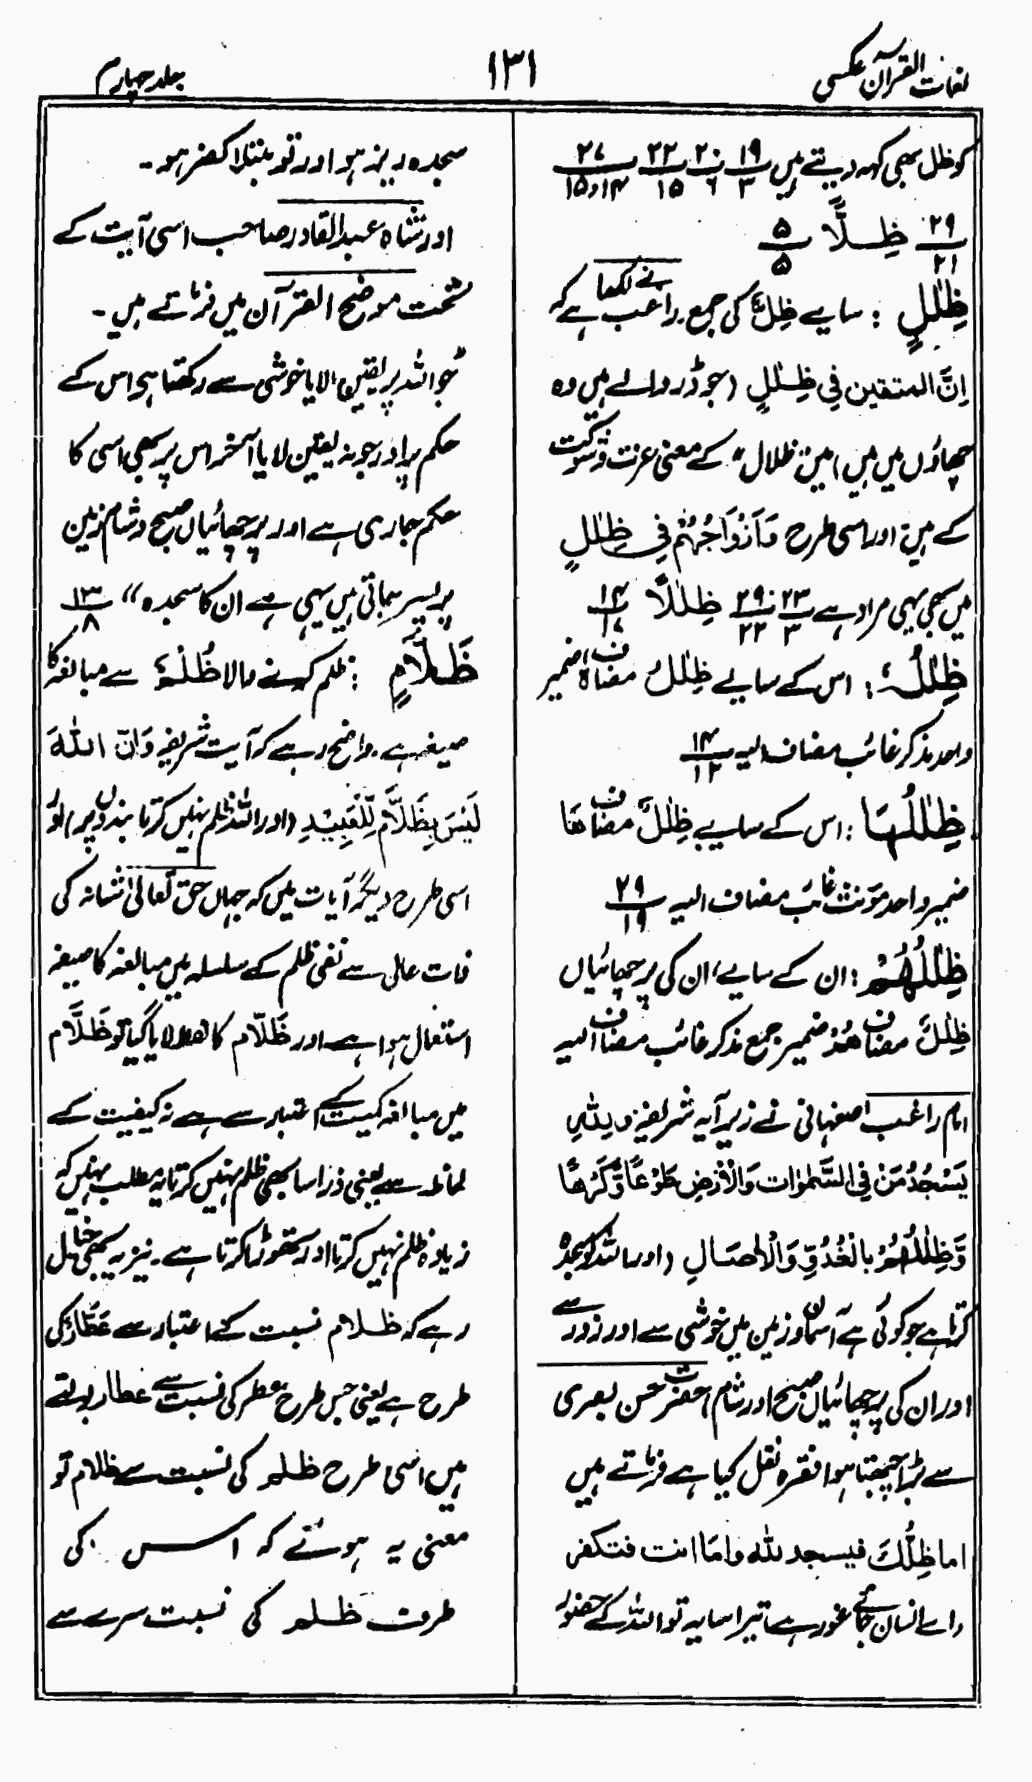 لغات القرآن عکسی
۱۳۱
جلد چہارم
کو ظل بھی کہہ دیتے ہیں ۱۹/۳ ۲۰/۶ ۲۲/۱۵ ۲۷/۱۴و۱۵
۲۹/۲۱ ظِلًّا ۵/۵
ظِلٰلٍ : سایے ظِلٌّ کی جمع. راغب نے لکھا ہے کہ
اِنَّ المتقین فِی ظِلٰلٍ (جو ڈر والے ہیں وہ
چھاؤں میں ہیں) میں ظلال کے معنی عزت و شوکت
کے ہیں اور اسی طرح وَاَزْوَاجُہُمْ فِی ظِلٰلٍ
میں بھی یہی مراد ہے ۲۳/۳ ۲۹/۲۲ ظِلٰلًا ۱۴/۱۷
ظِلٰلُہٗ : اس کے سایے ظِلٰلُ مضاف ہٗ ضمیر
واحد مذکر غائب مضاف الیہ ۱۴/۱۲
ظِلٰلُہَا : اس کے سایے ظِلٰلُ مضاف ھَا
ضمیر واحد مؤنث غائب مضاف الیہ ۲۹/۱۹
ظِلٰلُہُمْ : ان کے سایے، ان کی پرچھائیاں
ظِلٰلُ مضاف ھُمْ ضمیر جمع مذکر غائب مضاف الیہ
امام راغب اصفہانی نے زیر آیہ شریفہ وَلِلّٰہِ
یَسْجُدُ مَنْ فِی السَّمٰوٰات وَالْاَرْضِ طَوْعًا وَّکَرْھًا
وَّظِلٰلُھُمْ بِالْغُدُوِّ وَالْاٰصَالِ (اور اللہ کو سجدہ
کرتا ہے جو کوئی ہے آسمان و زمین میں خوشی سے اور زور سے
اور ان کی پرچھائیاں صبح اور شام) حضرت حسن بصری
سے بڑا چبھتا ہوا فقرہ نقل کیا ہے فرماتے ہیں
اما ظِلُّکَ فیسجد للہ وامّا انت فتکفر
(اے انسان جائے غور ہے تیرا سایہ تو اللہ کے حضور
سجدہ ریز ہو اور تو مبتلا کفر ہو۔
اور شاہ عبدالقادر صاحب اسی آیت کے
تحت موضح القرآن میں فرماتے ہیں۔
جو اللہ پر یقین لایا خوشی سے رکھتا ہے اس کے
حکم پر اور جو نہ یقین لایا آخر اس پر بھی اسی کا
حکم جاری ہے اور پرچھائیاں صبح و شام زمین
پر پسر جاتی ہیں یہی ہے ان کا سجدہ" ۱۳/۸
ظَلَّامٍ : ظلم کرنے والا ظُلْمٌ سے مبالغہ کا
صیغہ ہے. واضح رہے کہ آیت شریفہ وَانّ اللہَ
لَیْسَ بِظَلَّامٍ لِّلْعَبِیْدِ (اور اللہ ظلم نہیں کرتا بندوں پر) اور
اسی طرح دیگر آیات میں کہ جہاں حق تعالیٰ شانہ کی
ذات عالی سے نفی ظلم کے سلسلہ میں مبالغہ کا صیغہ
استعمال ہوا ہے اور ظَلّام کا لفظ لایا گیا تو ظَلَّام
میں مبالغہ کمیت کے اعتبار سے ہے نہ کیفیت کے
لحاظ سے یعنی ذرا سا بھی ظلم نہیں کرتا یہ مطلب نہیں کہ
زیادہ ظلم نہیں کرتا اور تھوڑا کرتا ہے. نیز یہ بھی خیال
رہے کہ ظلام نسبت کے اعتبار سے عَطَّارٌ کی
طرح ہے یعنی جس طرح عطر کی نسبت سے عطار بولتے
ہیں اسی طرح ظلم کی نسبت سے ظلام تو
معنی یہ ہوئے کہ اس کی
طرف ظلم کی نسبت سرے سے